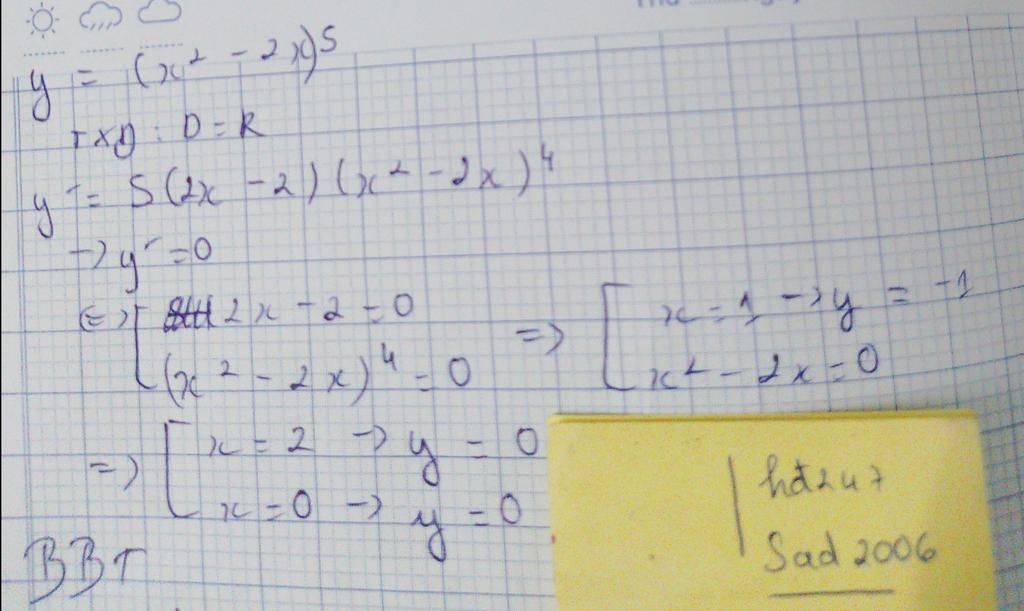 y = (x² - 2x)⁵
TXD : D = R
y' = 5(2x - 2)(x² - 2x)⁴
→ y' = 0
⇔ [ 2x - 2 = 0
(x² - 2x)⁴ = 0
⇒ [ x = 1 → y = -1
x² - 2x = 0
⇒ [ x = 2 → y = 0
x = 0 → y = 0
BBT
hđ247
Sad 2006